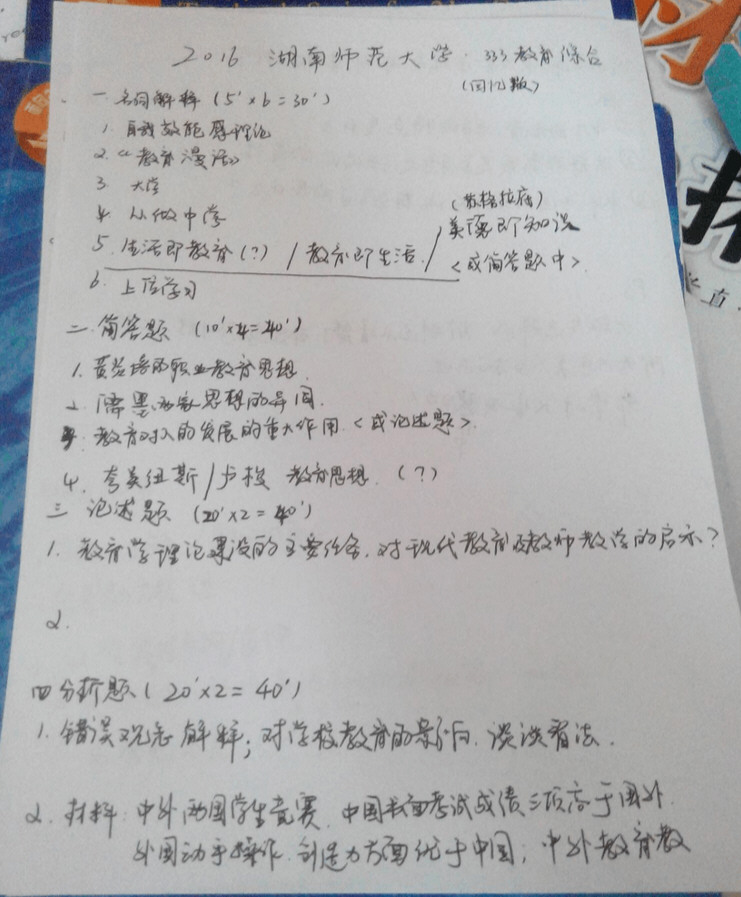 2016 湖南师范大学·333教育综合
(回忆版)
一 名词解释 (5'×6=30')
1. 自我效能感理论
2.《教育漫话》
3. 大学
4. 从做中学
(苏格拉底)
5. 生活即教育(?) / 教育即生活. / 美德即知识
<或简答题中>.
6. 上位学习
二. 简答题 (10'×4=40')
1. 黄炎培的职业教育思想.
2. 儒墨两家思想的异同.
3. 教育对人的发展的重大作用.<或论述题>.
4. 夸美纽斯/卢梭 教育思想. (?)
三 论述题 (20'×2=40')
1. 教育学理论建设的主要任务. 对于现代教育及教师教学的启示?
2.
四 分析题 (20'×2=40')
1. 错误观念 解释; 对学校教育的影响. 谈谈看法.
2. 材料: 中外两国学生竞赛. 中国书面考试成绩三项高于国外.
外国动手操作. 创造力方面优于中国; 中外教育教